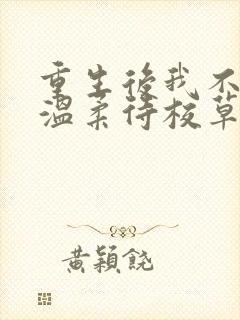 重生後我不
溫柔待校草
黃穎饒